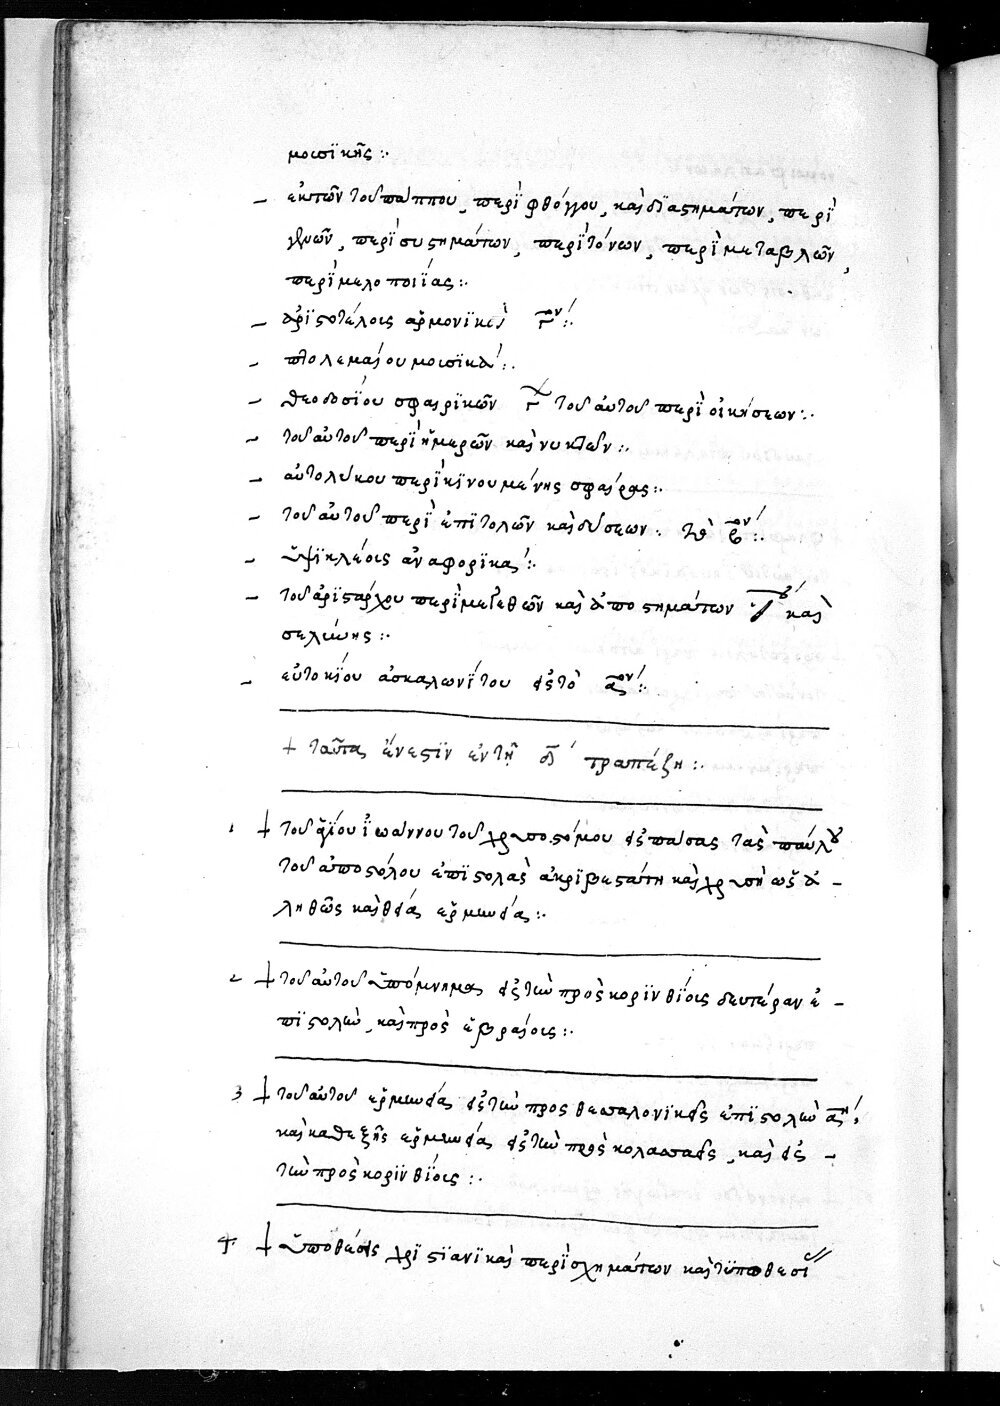 μουσϊκῆς :·
– ἐκ τῶν τοῦ πάππου, περὶ φθόγγου, καὶ διαστημάτων, περὶ
γενῶν, περὶ συστημάτων, περὶ τόνων, περὶ μεταβολῶν,
περὶ μελοποιΐας :·
– ἀριστοτέλους ἁρμονϊκὰ Γον :·
– πτολεμαίου μουσϊκὰ :·
– θεοδοσΐου σφαιρϊκῶν Γ τοῦ αὐτοῦ περὶ οἰκήσεων :·
– τοῦ αὐτοῦ περὶ ἡμερῶν καὶ νυκτῶν :·
– αὐτολύκου περὶ κινουμένης σφαίρας :·
– τοῦ αὐτοῦ περὶ ἐπιτολῶν καὶ δύσεων. τὸ βον :·
– ὑψικλέους ἀναφορϊκὰ :·
– τοῦ ἀριστάρχου περὶ μεγεθῶν καὶ ἀποστημάτων καὶ
σελήνης :·
– εὐτοκΐου ἀσκαλωνίτου εἰς τὸ αον :·
+ ταῦτα ἔνεστιν ἐν τῇ δ΄ τραπέζῃ :·
1 + τοῦ ἁγίου ἰωάννου τοῦ χρυσοστόμου εἰς πάσας τὰς παύλου
τοῦ ἀποστόλου ἐπιστολὰς ἀκριβεστάτη καὶ χρυσῆ ὡς ἀ–
ληθῶς καὶ θεία ἑρμηνεία :·
2 + τοῦ αὐτοῦ ὑπόμνημα εἰς τὴν πρὸς κορινθΐους δευτέραν ἐ–
πιστολὴν, καὶ πρὸς ἑβραίους :·
3 + τοῦ αὐτοῦ ἑρμηνεία εἰς τὴν προς θεσσαλονϊκεῖς ἐπιστολὴν αην,
καὶ καθεξῆς ἑρμηνεία εἰς τὴν πρὸς κολασσαεῖς, καὶ εἰς –
τὴν πρὸς κορινθΐους :·
4· + ὑποθέσεις χριστϊανϊκαὶ περὶ σχημάτων καὶ